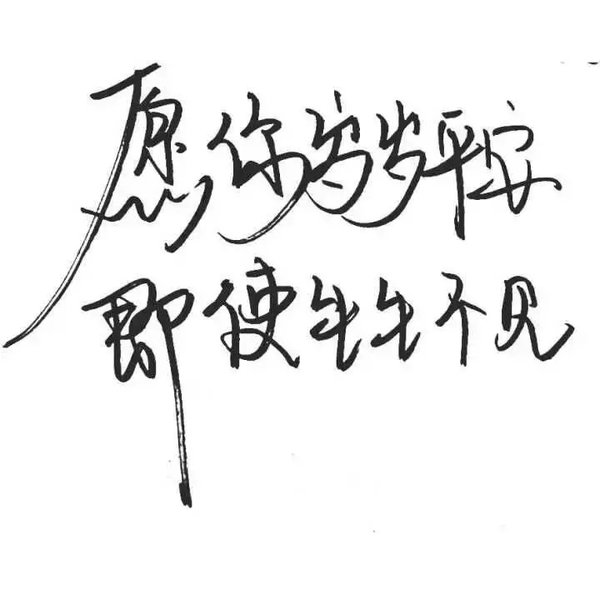 愿你岁岁平安
即使生生不见